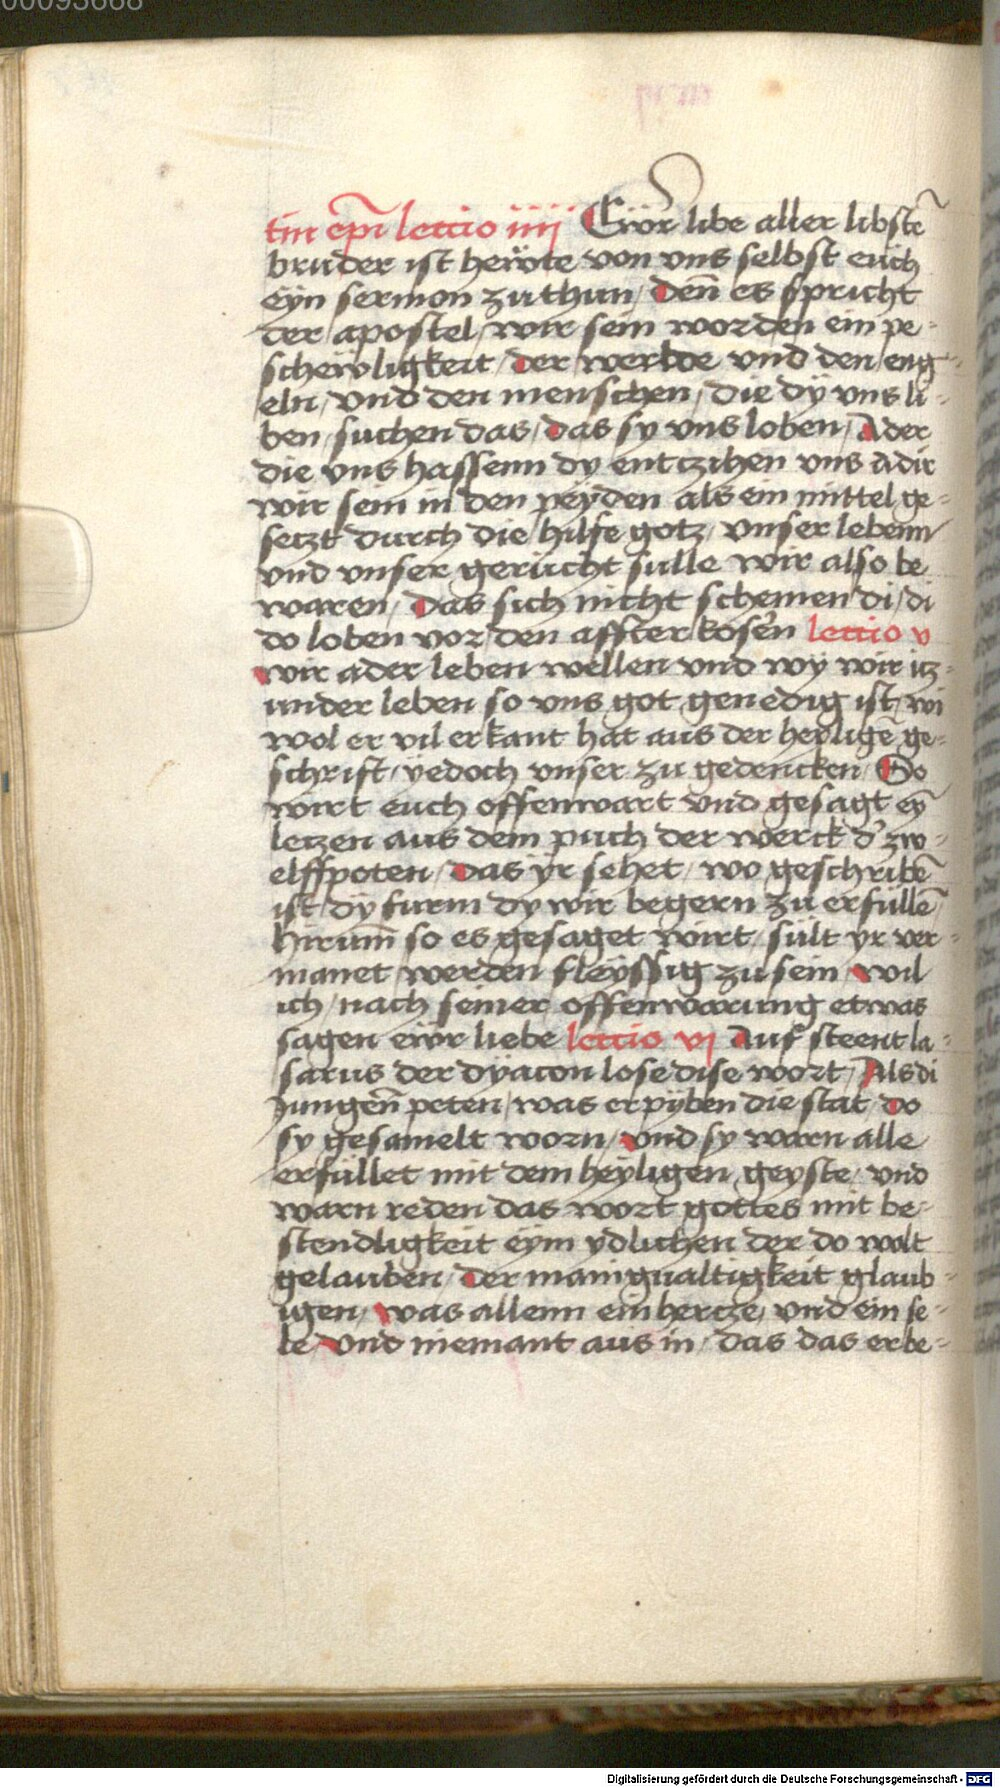 00093668
tin ep̄i lectio iiij Ewͦr libe aller libstē
bruder ist hewͦte von vns selbst euch
eyn sermon zu thun / Den̄ es spricht
der apostel / wir sein worden ein pe-
schewligkeit / Der werlde vnd den eng-
eln / vnd den menschen / die dÿ vns li-
ben / suchen das / das sy vns loben / Ader
die vns hassenn dy entczihen vns adir
wir sein in den peyden als ein mittel ge-
seczt durch die hilfe gotz / vnser lebenn
vnd vnser gerucht sulle wir also be
waren / Das sich nicht schemen di / di
do loben vor den affterkosern lectio v
wir ader leben wellen vnd wÿ wir itz-
under leben so vns got genedig ist / wi
wol er vil erkant hat aus der heyligē ge-
schrift / yedoch vnser zu gedencken / So
wirt euch offenwart vnd gesagt eȳ
letzen aus dem puch der werck d' zw-
elffpoten / Das yr sehet / wo geschribē
ist / dÿ furm dy wir begern zu erfullē
hirum̄ so es gesaget wirt / sult yr ver-
manet werden fleyssig zu sein / wil
ich / nach seiner offenwarung etwas
sagen ewͦr liebe lectio vj Auf steent la-
sarus der dyacon lose dise wort / Als di
Jungen̄ peten / was erpyben die stat / do
sy gesamelt worn / vnd sy warn alle
erfullet mit dem heyligen geyste / vnd
warn reden das wort gottes mit be-
stendligkeit eym ydlichen der do wolt
gelauben / Der manigualtigkeit glaub-
igen / was allenn ein hercze / vnd ein se-
le / vnd niemant aus in / das das er be-
Digitalisierung gefördert durch die Deutsche Forschungsgemeinschaft - DFG